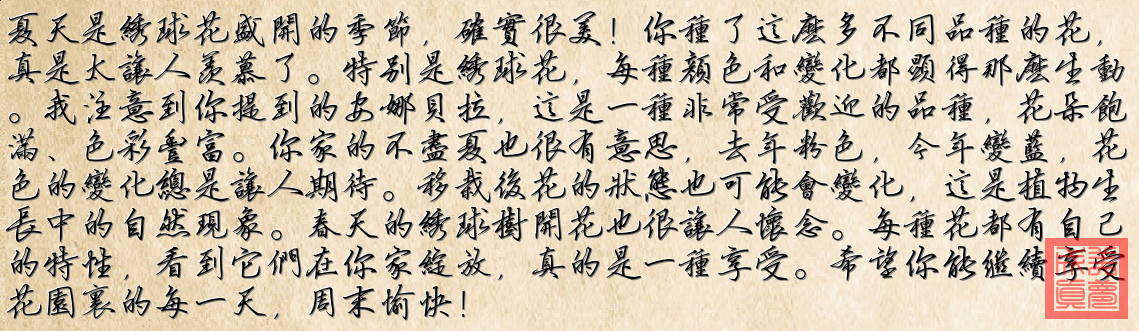 夏天是綉球花盛開的季節，確實很美！你種了這麽多不同品種的花，
真是太讓人羨慕了。特别是綉球花，每種顔色和變化都顯得那麽生動
。我注意到你提到的安娜貝拉，這是一種非常受歡迎的品種，花朵飽
滿、色彩豐富。你家的不盡夏也很有意思，去年粉色，今年變藍，花
色的變化總是讓人期待。移栽後花的狀態也可能會變化，這是植物生
長中的自然現象。春天的綉球樹開花也很讓人懷念。每種花都有自己
的特性，看到它們在你家綻放，真的是一種享受。希望你能繼續享受
花園裏的每一天，周末愉快！